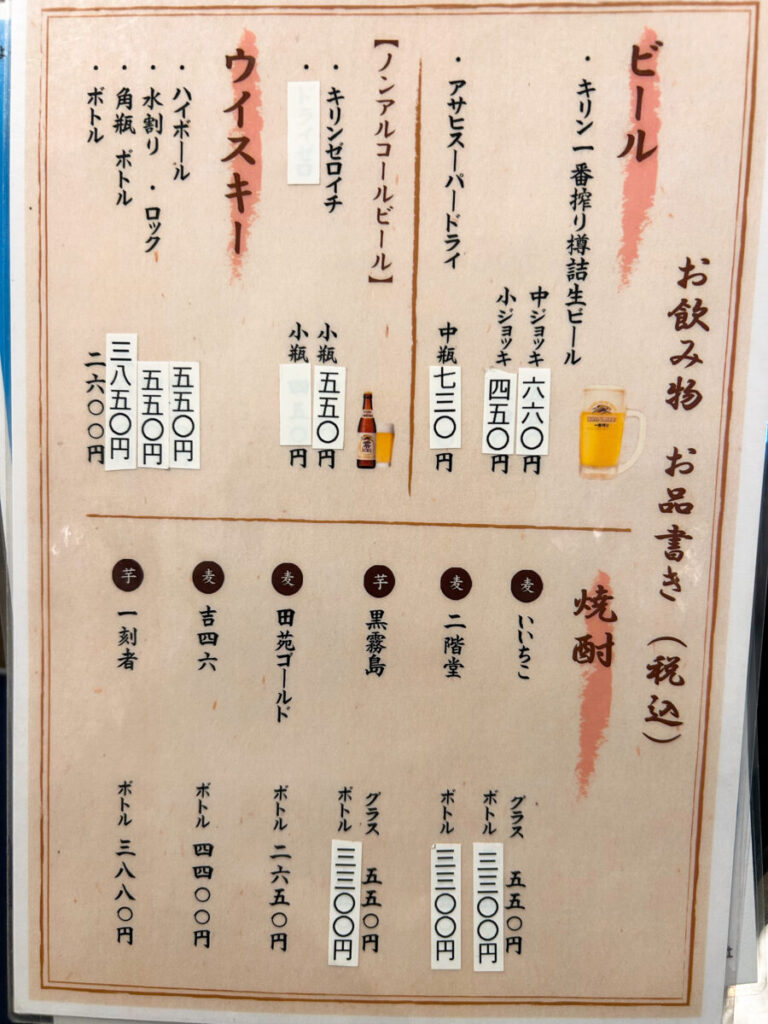 お飲み物 お品書き（税込）
ビール
・キリン一番搾り樽詰生ビール
中ジョッキ 六六〇円
小ジョッキ 四五〇円
・アサヒスーパードライ 中瓶 七三〇円
【ノンアルコールビール】
・キリンゼロイチ 小瓶 五五〇円
・ 小瓶 円
ウイスキー
・ハイボール 五五〇円
・水割り ・ロック 五五〇円
・角瓶 ボトル 三八五〇円
・ボトル 二六〇〇円
焼酎
麦 いいちこ グラス 五五〇円
ボトル 三三〇〇円
麦 二階堂 ボトル 三三〇〇円
芋 黒霧島 グラス 五五〇円
ボトル 三三〇〇円
麦 田苑ゴールド ボトル 二六五〇円
麦 吉四六 ボトル 四四〇〇円
芋 一刻者 ボトル 三八八〇円